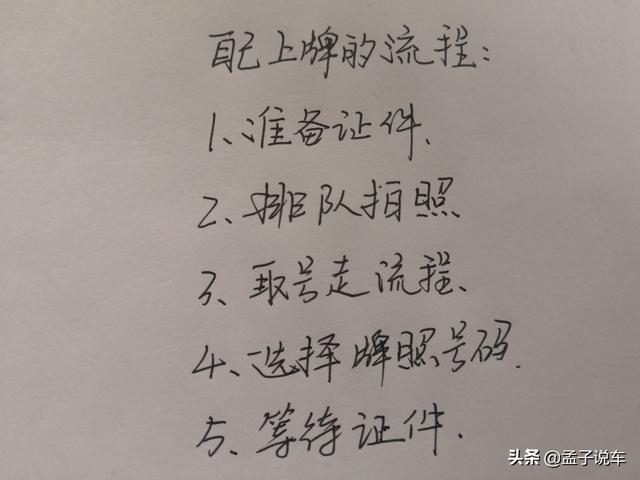 自己上牌的流程:
1、准备证件.
2、排队拍照
3、取号走流程、
4、选择牌照号码.
5、等待证件.
头条 @孟子说车